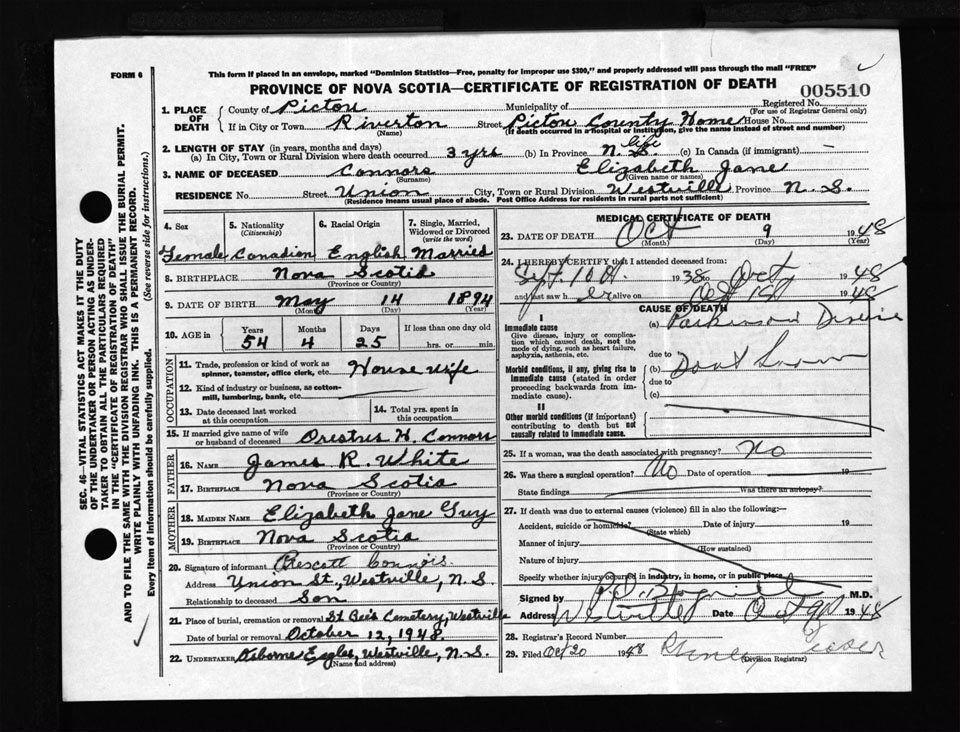 FORM 6
This form if placed in an envelope, marked "Dominion Statistics—Free, penalty for improper use $300," and properly addressed will pass through the mail "FREE"
PROVINCE OF NOVA SCOTIA—CERTIFICATE OF REGISTRATION OF DEATH
005510
1. PLACE OF DEATH
County of Pictou Municipality of Registered No.
(For use of Registrar General only)
If in City or Town Riverton Street Pictou County Home House No.
(Name) (If death occurred in a hospital or institution, give the name instead of street and number)
2. LENGTH OF STAY (in years, months and days)
(a) In City, Town or Rural Division where death occurred 3 yrs (b) In Province life N.S. (c) In Canada (if immigrant) —
3. NAME OF DECEASED Connors Elizabeth Jane
(Surname) (Given name or names)
RESIDENCE No. Street Union City, Town or Rural Division Westville Province N.S.
(Residence means usual place of abode. Post Office Address for residents in rural parts not sufficient)
4. Sex
5. Nationality (Citizenship)
6. Racial Origin
7. Single, Married, Widowed or Divorced (write the word)
Female Canadian English Married
8. BIRTHPLACE Nova Scotia
(Province or Country)
9. DATE OF BIRTH May 14 1894
(Month) (Day) (Year)
10. AGE in Years Months Days If less than one day
54 4 25 hrs. or min.
OCCUPATION
11. Trade, profession or kind of work as spinner, teamster, office clerk, etc. House wife
12. Kind of industry or business, as cotton-mill, lumbering, bank, etc.
13. Date deceased last worked at this occupation.
14. Total yrs. spent in this occupation.
15. If married give name of wife or husband of deceased H. Connors
FATHER
16. NAME James R. White
17. BIRTHPLACE Nova Scotia
(Province or Country)
MOTHER
18. MAIDEN NAME Elizabeth Jane
19. BIRTHPLACE Nova Scotia
(Province or Country)
20. Signature of informant Prescott Connors.
Address Union St., Westville, N.S.
Relationship to deceased Son
21. Place of burial, cremation or removal Cemetery, Westville
Date of burial or removal October 12, 1948.
22. UNDERTAKER Osborne Eagles, Westville, N.S.
(Name and address)
MEDICAL CERTIFICATE OF DEATH
23. DATE OF DEATH Oct 9 1948
(Month) (Day) (Year)
24. I HEREBY CERTIFY that I attended deceased from:
Sept. 10th 1938 to Oct 1948
and last saw her alive on Oct 1st 1948
CAUSE OF DEATH
I
Immediate cause
Give disease, injury or complication which caused death, not the mode of dying, such as heart failure, asphyxia, asthenia, etc.
(a) Parkinson Disease
due to
Morbid conditions, if any, giving rise to immediate cause (stated in order proceeding backwards from immediate cause).
(b) Dont know
due to
(c)
II
Other morbid conditions (if important) contributing to death but not causally related to immediate cause.
25. If a woman, was the death associated with pregnancy? No
26. Was there a surgical operation? No Date of operation 19
State findings Was there an autopsy?
27. If death was due to external causes (violence) fill in also the following:—
Accident, suicide or homicide? Date of injury 19
(State which)
Manner of injury
(How sustained)
Nature of injury
Specify whether injury occurred in industry, in home, or in public place
Signed by M.D.
Address Westville Date Oct 9th 1948
28. Registrar's Record Number
29. Filed Oct 20 1948
(Division Registrar)
SEC. 46—VITAL STATISTICS ACT MAKES IT THE DUTY
OF THE UNDERTAKER OR PERSON ACTING AS UNDER-
TAKER TO OBTAIN ALL THE PARTICULARS REQUIRED
IN THE "CERTIFICATE OF REGISTRATION OF DEATH"
AND TO FILE THE SAME WITH THE DIVISION REGISTRAR WHO SHALL ISSUE THE BURIAL PERMIT.
WRITE PLAINLY WITH UNFADING INK. THIS IS A PERMANENT RECORD.
Every item of information should be carefully supplied. (See reverse side for instructions.)